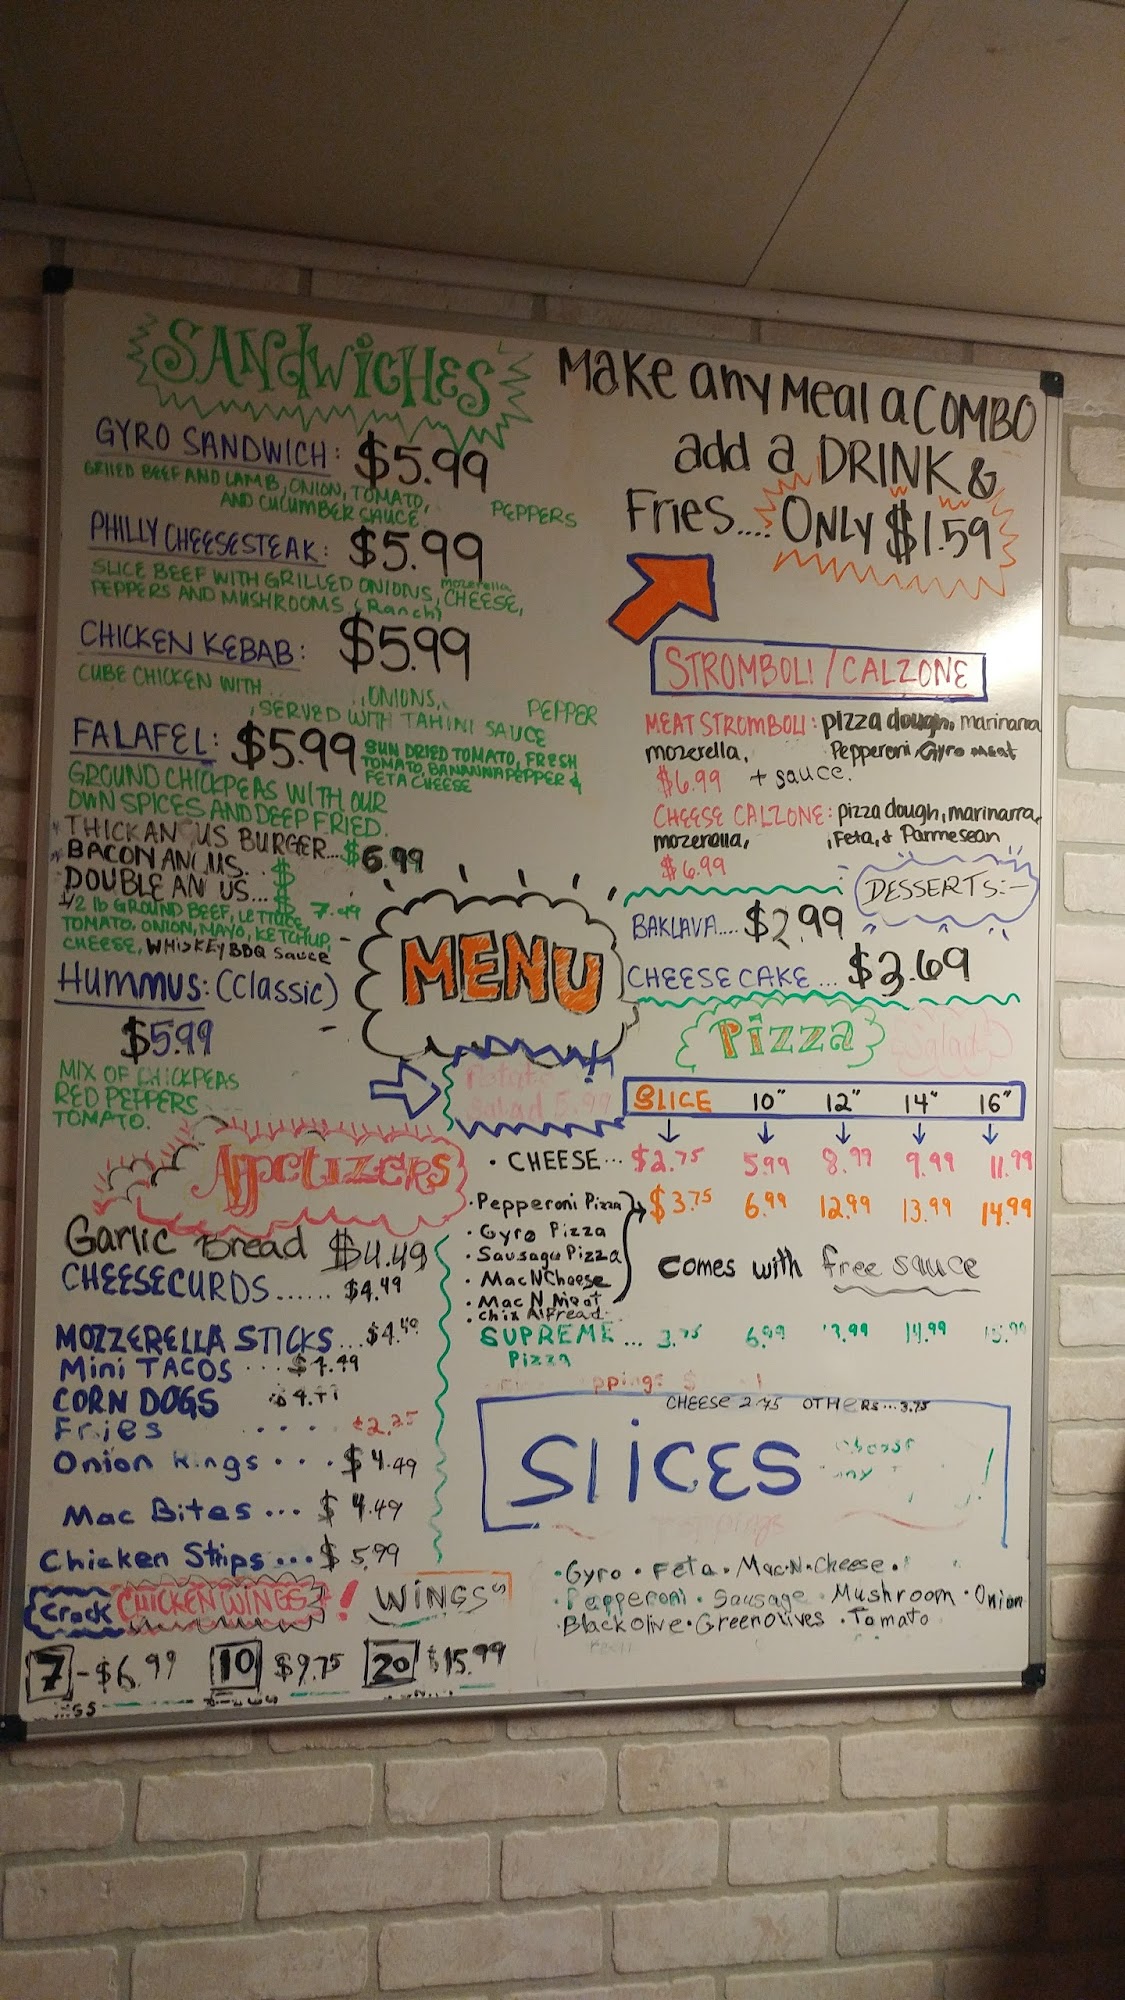 SANDWICHES
GYRO SANDWICH: $5.99
GRILLED BEEF AND LAMB, ONION, TOMATO,
AND CUCUMBER SAUCE PEPPERS
PHILLY CHEESESTEAK: $5.99
SLICE BEEF WITH GRILLED ONIONS, mozerella CHEESE,
PEPPERS AND MUSHROOMS (Ranch)
CHICKEN KEBAB: $5.99
CUBE CHICKEN WITH ONIONS, PEPPER
SERVED WITH TAHINI SAUCE
FALAFEL: $5.99
SUN DRIED TOMATO, FRESH
TOMATO, BANANNA PEPPER &
FETA CHEESE
GROUND CHICKPEAS WITH OUR
OWN SPICES AND DEEP FRIED.
THICK AN US BURGER... $6.99
BACON ANGUS... $
DOUBLE AN US... $ 7.49
1/2 lb GROUND BEEF, LETTUCE
TOMATO, ONION, MAYO, KETCHUP,
CHEESE, WHISKEY BBQ Sauce
HUMMUS: (Classic)
$5.99
MIX OF CHICKPEAS
RED PEPPERS
TOMATO.
Appetizers
Garlic Bread $4.49
CHEESECURDS...... $4.49
MOZZERELLA STICKS... $4.49
Mini TACOS ... $4.49
CORN DOGS
Fries .... $2.25
Onion Rings .... $4.49
Mac Bites ... $4.49
Chicken Strips ... $5.99
Crack CHICKEN WINGS! WINGS
7 - $6.99 10 $9.75 20 $15.99
Make any Meal a COMBO
add a DRINK &
Fries.... ONLY $1.59
STROMBOLI / CALZONE
MEAT STROMBOLI: pizza dough, marinara
mozerella, Pepperoni Gyro meat
$6.99 + sauce.
CHEESE CALZONE: pizza dough, marinarra,
mozerolla, Feta, & Parmesean
$6.99
DESSERTS:-
BAKLAVA.... $2.99
CHEESE CAKE ... $3.69
MENU
Potato
Salad 5.99
Pizza
Salad
SLICE 10" 12" 14" 16"
• CHEESE... $2.75 5.99 8.99 9.99 11.99
• Pepperoni Pizza $3.75 6.99 12.99 13.99 14.99
• Gyro Pizza
• Sausage Pizza
• Mac N Cheese
• Mac N Meat
• Chix Alfread
comes with free sauce
SUPREME ... 3.75 6.99 13.99 14.99
Pizza
CHEESE 2.75 OTHERS...3.75
SLICES
toppings
• Gyro • Feta • Mac•N•Cheese •
• Pepperoni • Sausage • Mushroom • Onion
• Black olive • Green olives • Tomato